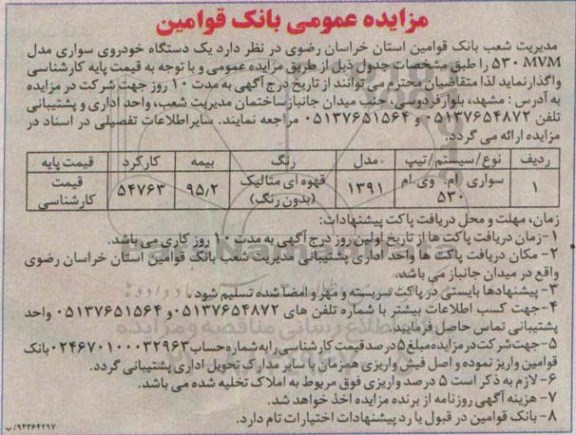 مزایده عمومی بانک قوامین
مدیریت شعب بانک قوامین استان خراسان رضوی در نظر دارد یک دستگاه خودروی سواری مدل
MVM ۵۳۰ را طبق مشخصات جدول ذیل از طریق مزایده عمومی و با توجه به قیمت پایه کارشناسی
واگذار نماید لذا متقاضیان محترم می توانند از تاریخ درج آگهی به مدت ۱۰ روز جهت شرکت در مزایده
به آدرس : مشهد، بلوار فردوسی، جنب میدان جانباز ساختمان مدیریت شعب، واحد اداری و پشتیبانی
تلفن ۰۵۱۳۷۶۵۴۸۷۲ و ۰۵۱۳۷۶۵۱۵۶۴ مراجعه نمایند. سایر اطلاعات تفصیلی در اسناد در
مزایده ارائه می گردد.
ردیف نوع/سیستم/تیپ مدل رنگ بیمه کارکرد قیمت پایه
۱ سواری ام. وی.ام ۵۳۰ ۱۳۹۱ قهوه ای متالیک (بدون رنگ) ۹۵/۲ ۵۴۷۶۳ قیمت کارشناسی
زمان، مهلت و محل دریافت پاکت پیشنهادات:
۱-زمان دریافت پاکت ها از تاریخ اولین روز درج آگهی به مدت ۱۰ روز کاری می باشد.
۲- مکان دریافت پاکت ها واحد اداری پشتیبانی مدیریت شعب بانک قوامین استان خراسان رضوی
واقع در میدان جانباز می باشد.
۳- پیشنهادها بایستی در پاکت سربسته و مهر و امضا شده تسلیم شود .
۴-جهت کسب اطلاعات بیشتر با شماره تلفن های ۰۵۱۳۷۶۵۴۸۷۲ و ۰۵۱۳۷۶۵۱۵۶۴ واحد
پشتیبانی تماس حاصل فرمایید.
۵-جهت شرکت در مزایده مبلغ ۵ درصد قیمت کارشناسی را به شماره حساب ۰۲۴۶۷۰۱۰۰۰۳۲۹۶۳ بانک
قوامین واریز نموده و اصل فیش واریزی همزمان با سایر مدارک تحویل اداری پشتیبانی گردد.
۶-لازم به ذکر است ۵ درصد واریزی فوق مربوط به املاک تخلیه شده می باشد.
۷- هزینه آگهی روزنامه از برنده مزایده اخذ خواهد شد.
۸- بانک قوامین در قبول یا رد پیشنهادات اختیارات تام دارد.